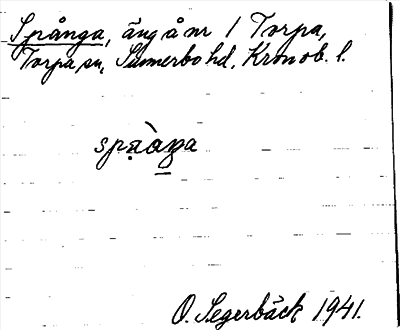 Spånga, äng å nr 1 Torpa,
Torpa sn, Sunnerbo hd, Kronob. l.
spa̱àŋa
O. Segerbäck 1941.